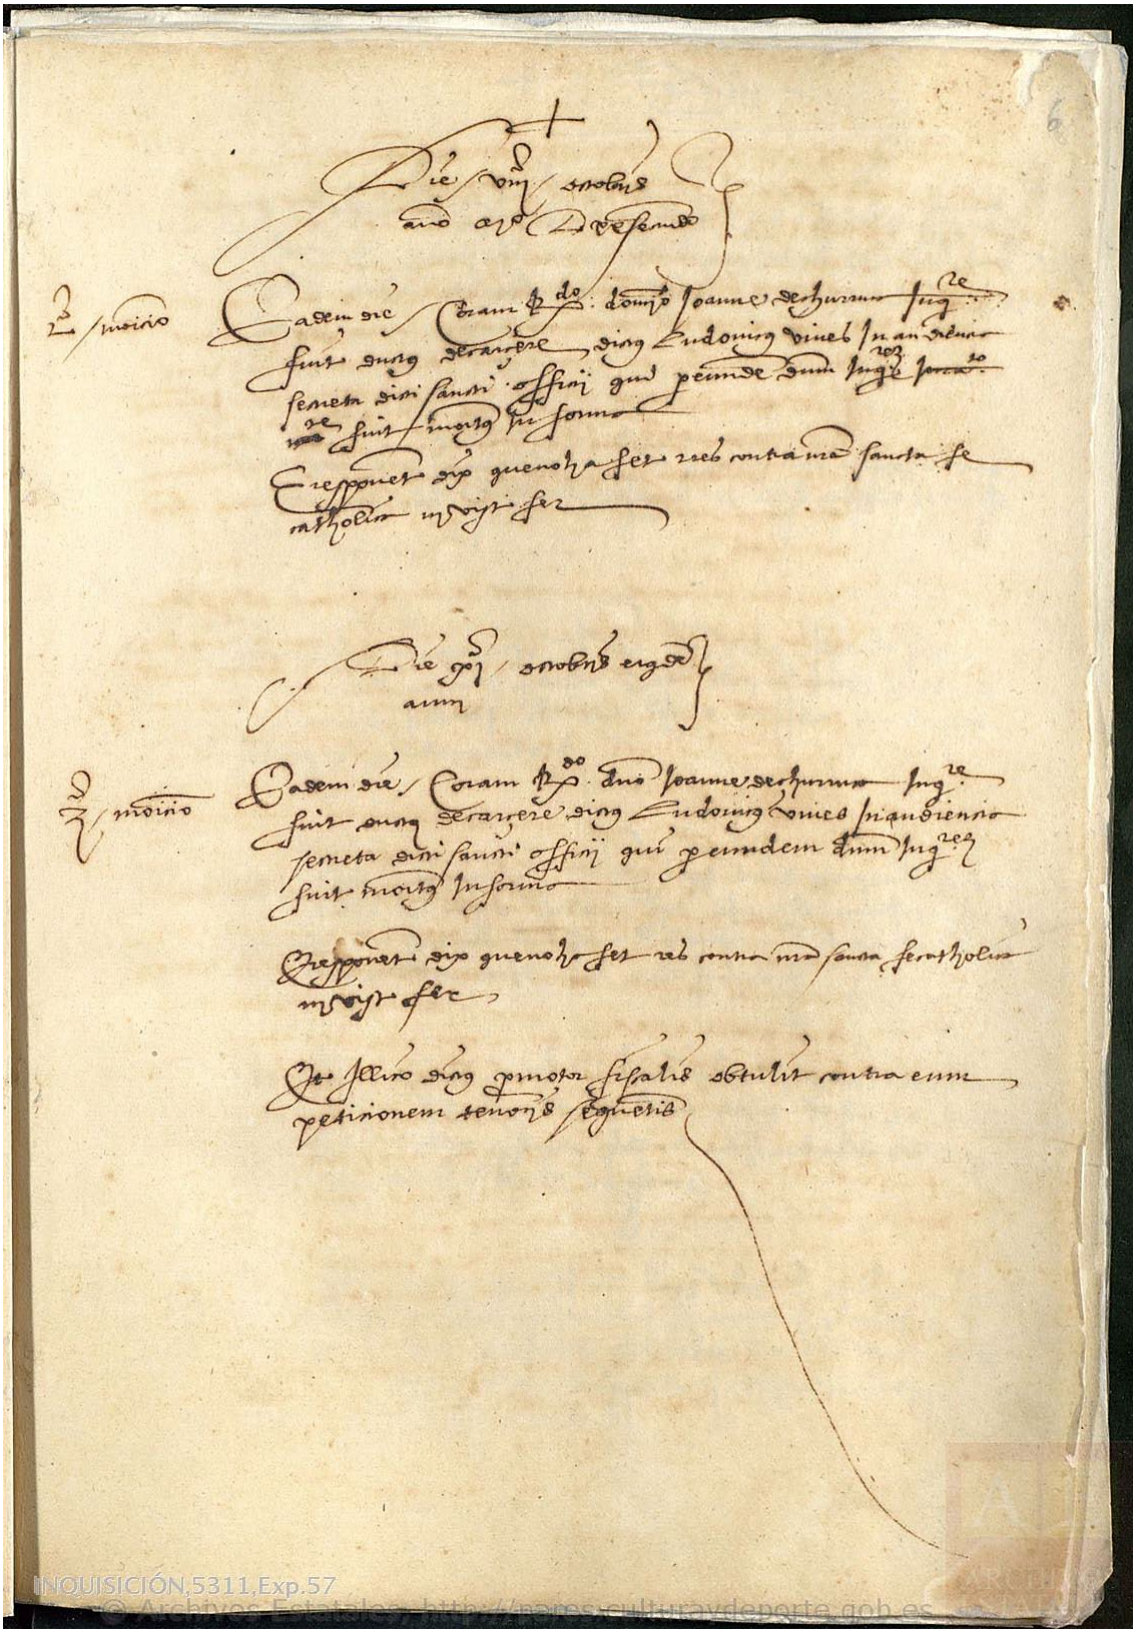 6
Die viiij octobris
año M D xxsecundo
2ª monicio
Eadem die Coram Rdo. domiño Joanne dechurruca Inqre
fuit ductus decarçere dictus Ludovicus vives In audiencia
secreta dicti sancti officij qui per eumde dum Inqrez
re fuit monitus In forma
E responent dix que no ha fet res contra nra sancta fe
catholica nj vist fer
Die xvj octobris eiusde
anni
3ª monicio
Eadem die Coram Rdo. dno Joanne dechurruca Inqre
fuit ductus decarçere dictus Ludovicus vives In audiencia
secreta dicti sancti officij qui per eumdem dum Inqrez
fuit monitus In forma
E responent dix que no ha fet res contra nra sancta fe catholica
nj vist fer
Et Illico dictus promotor fiscalis obtulit contra eum
peticionem tenoris sequentis
INQUISICIÓN,5311,Exp.57
© Archivos Estatales, http://pares.culturaydeporte.gob.es